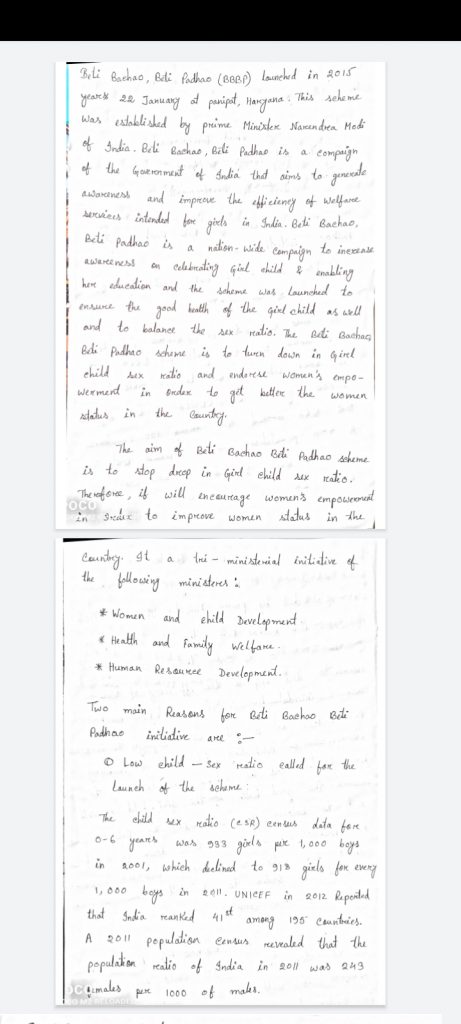 Beti Bachao, Beti Padhao (BBBP) launched in 2015
years 22 January at panipat, Haryana. This scheme
was established by prime Minister Narendra Modi
of India. Beti Bachao, Beti Padhao is a compaign
of the Government of India that aims to generate
awareness and improve the efficiency of welfare
services intended for girls in India. Beti Bachao,
Beti Padhao is a nation-wide compaign to increase
awareness on celebrating Girl child & enabling
her education and the scheme was launched to
ensure the good health of the girl child as well
and to balance the sex ratio. The Beti Bachao,
Beti Padhao scheme is to turn down in Girl
child sex ratio and endorse women's empo-
werment in order to get better the women
status in the Country.
The aim of Beti Bachao Beti Padhao scheme
is to stop drop in Girl child sex ratio.
Therefore, it will encourage women's empowerment
in order to improve women status in the
Country. It a tri-ministerial initiative of
the following ministeres :
* Women and child Development
* Health and Family Welfare.
* Human Resource Development.
Two main Reasons for Beti Bachao Beti
Padhao initiative are :-
① Low child - Sex ratio called for the
Launch of the scheme :
The child sex ratio (CSR) census data for
0-6 years was 933 girls per 1,000 boys
in 2001, which declined to 918 girls for every
1,000 boys in 2011. UNICEF in 2012 Reported
that India ranked 41st among 195 countries.
A 2011 population census revealed that the
population ratio of India in 2011 was 943
females per 1000 of males.